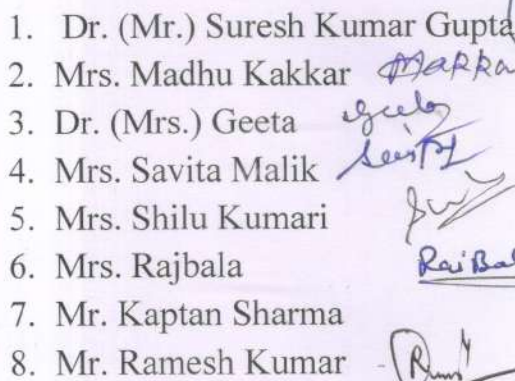 1. Dr. (Mr.) Suresh Kumar Gupta
2. Mrs. Madhu Kakkar
3. Dr. (Mrs.) Geeta
4. Mrs. Savita Malik
5. Mrs. Shilu Kumari
6. Mrs. Rajbala
7. Mr. Kaptan Sharma
8. Mr. Ramesh Kumar